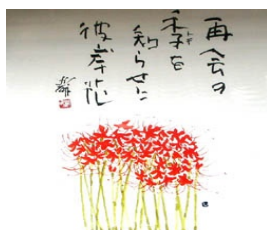 再会の
季を
トキ
知らせに
彼岸花